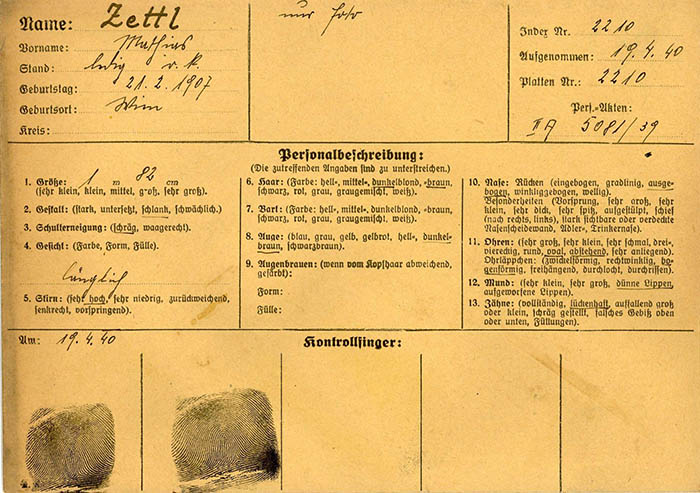 Name: Zettl
Vorname: Mathias
Stand: ledig r. k.
Geburtstag: 21. 2. 1907
Geburtsort: Wien
Kreis:
nur Foto
Index Nr. 2210
Aufgenommen: 19. 4. 40
Platten Nr.: 2210
Pers.-Akten:
II A 5081/39
Personalbeschreibung:
(Die zutreffenden Angaben sind zu unterstreichen.)
1. Größe: 1 m 82 cm
(sehr klein, klein, mittel, groß, sehr groß).
2. Gestalt: (stark, untersetzt, schlank, schwächlich).
3. Schulterneigung: (schräg, waagerecht).
4. Gesicht: (Farbe, Form, Fülle).
länglich
5. Stirn: (sehr hoch, sehr niedrig, zurückweichend,
senkrecht, vorspringend).
6. Haar: (Farbe: hell-, mittel-, dunkelblond, -braun,
schwarz, rot, grau, graugemischt, weiß).
7. Bart: (Farbe: hell-, mittel-, dunkelblond, -braun,
schwarz, rot, grau, graugemischt, weiß).
8. Auge: (blau, grau, gelb, gelbrot, hell-, dunkel-
braun, schwarzbraun).
9. Augenbrauen: (wenn vom Kopfhaar abweichend,
gefärbt):
Form:
Fülle:
10. Nase: Rücken (eingebogen, gradlinig, ausge-
bogen, winkliggebogen, wellig).
Besonderheiten (Vorsprung, sehr groß, sehr
klein, sehr dick, sehr spitz, aufgestülpt, schief
(nach rechts, links), stark sichtbare oder verdeckte
Nasenscheidewand, Adler-, Trinkernase).
11. Ohren: (sehr groß, sehr klein, sehr schmal, drei-,
viereckig, rund, oval, abstehend, sehr anliegend).
Ohrläppchen: (zwickelförmig, rechtwinklig, bo-
genförmig, freihängend, durchlocht, durchrissen).
12. Mund: (sehr klein, sehr groß, dünne Lippen,
aufgeworfene Lippen).
13. Zähne: (vollständig, lückenhaft, auffallend groß
oder klein, schräg gestellt, falsches Gebiß oben
oder unten, Füllungen).
Am: 19. 4. 40
Kontrollfinger: